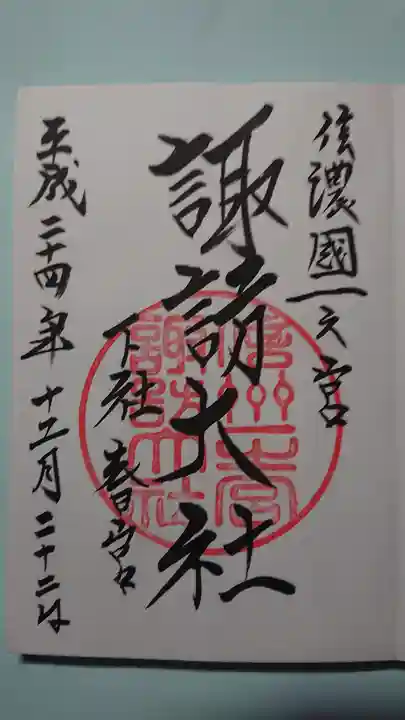 信濃國一之宮
諏訪大社
下社 春宮
平成二十四年十二月二十二日